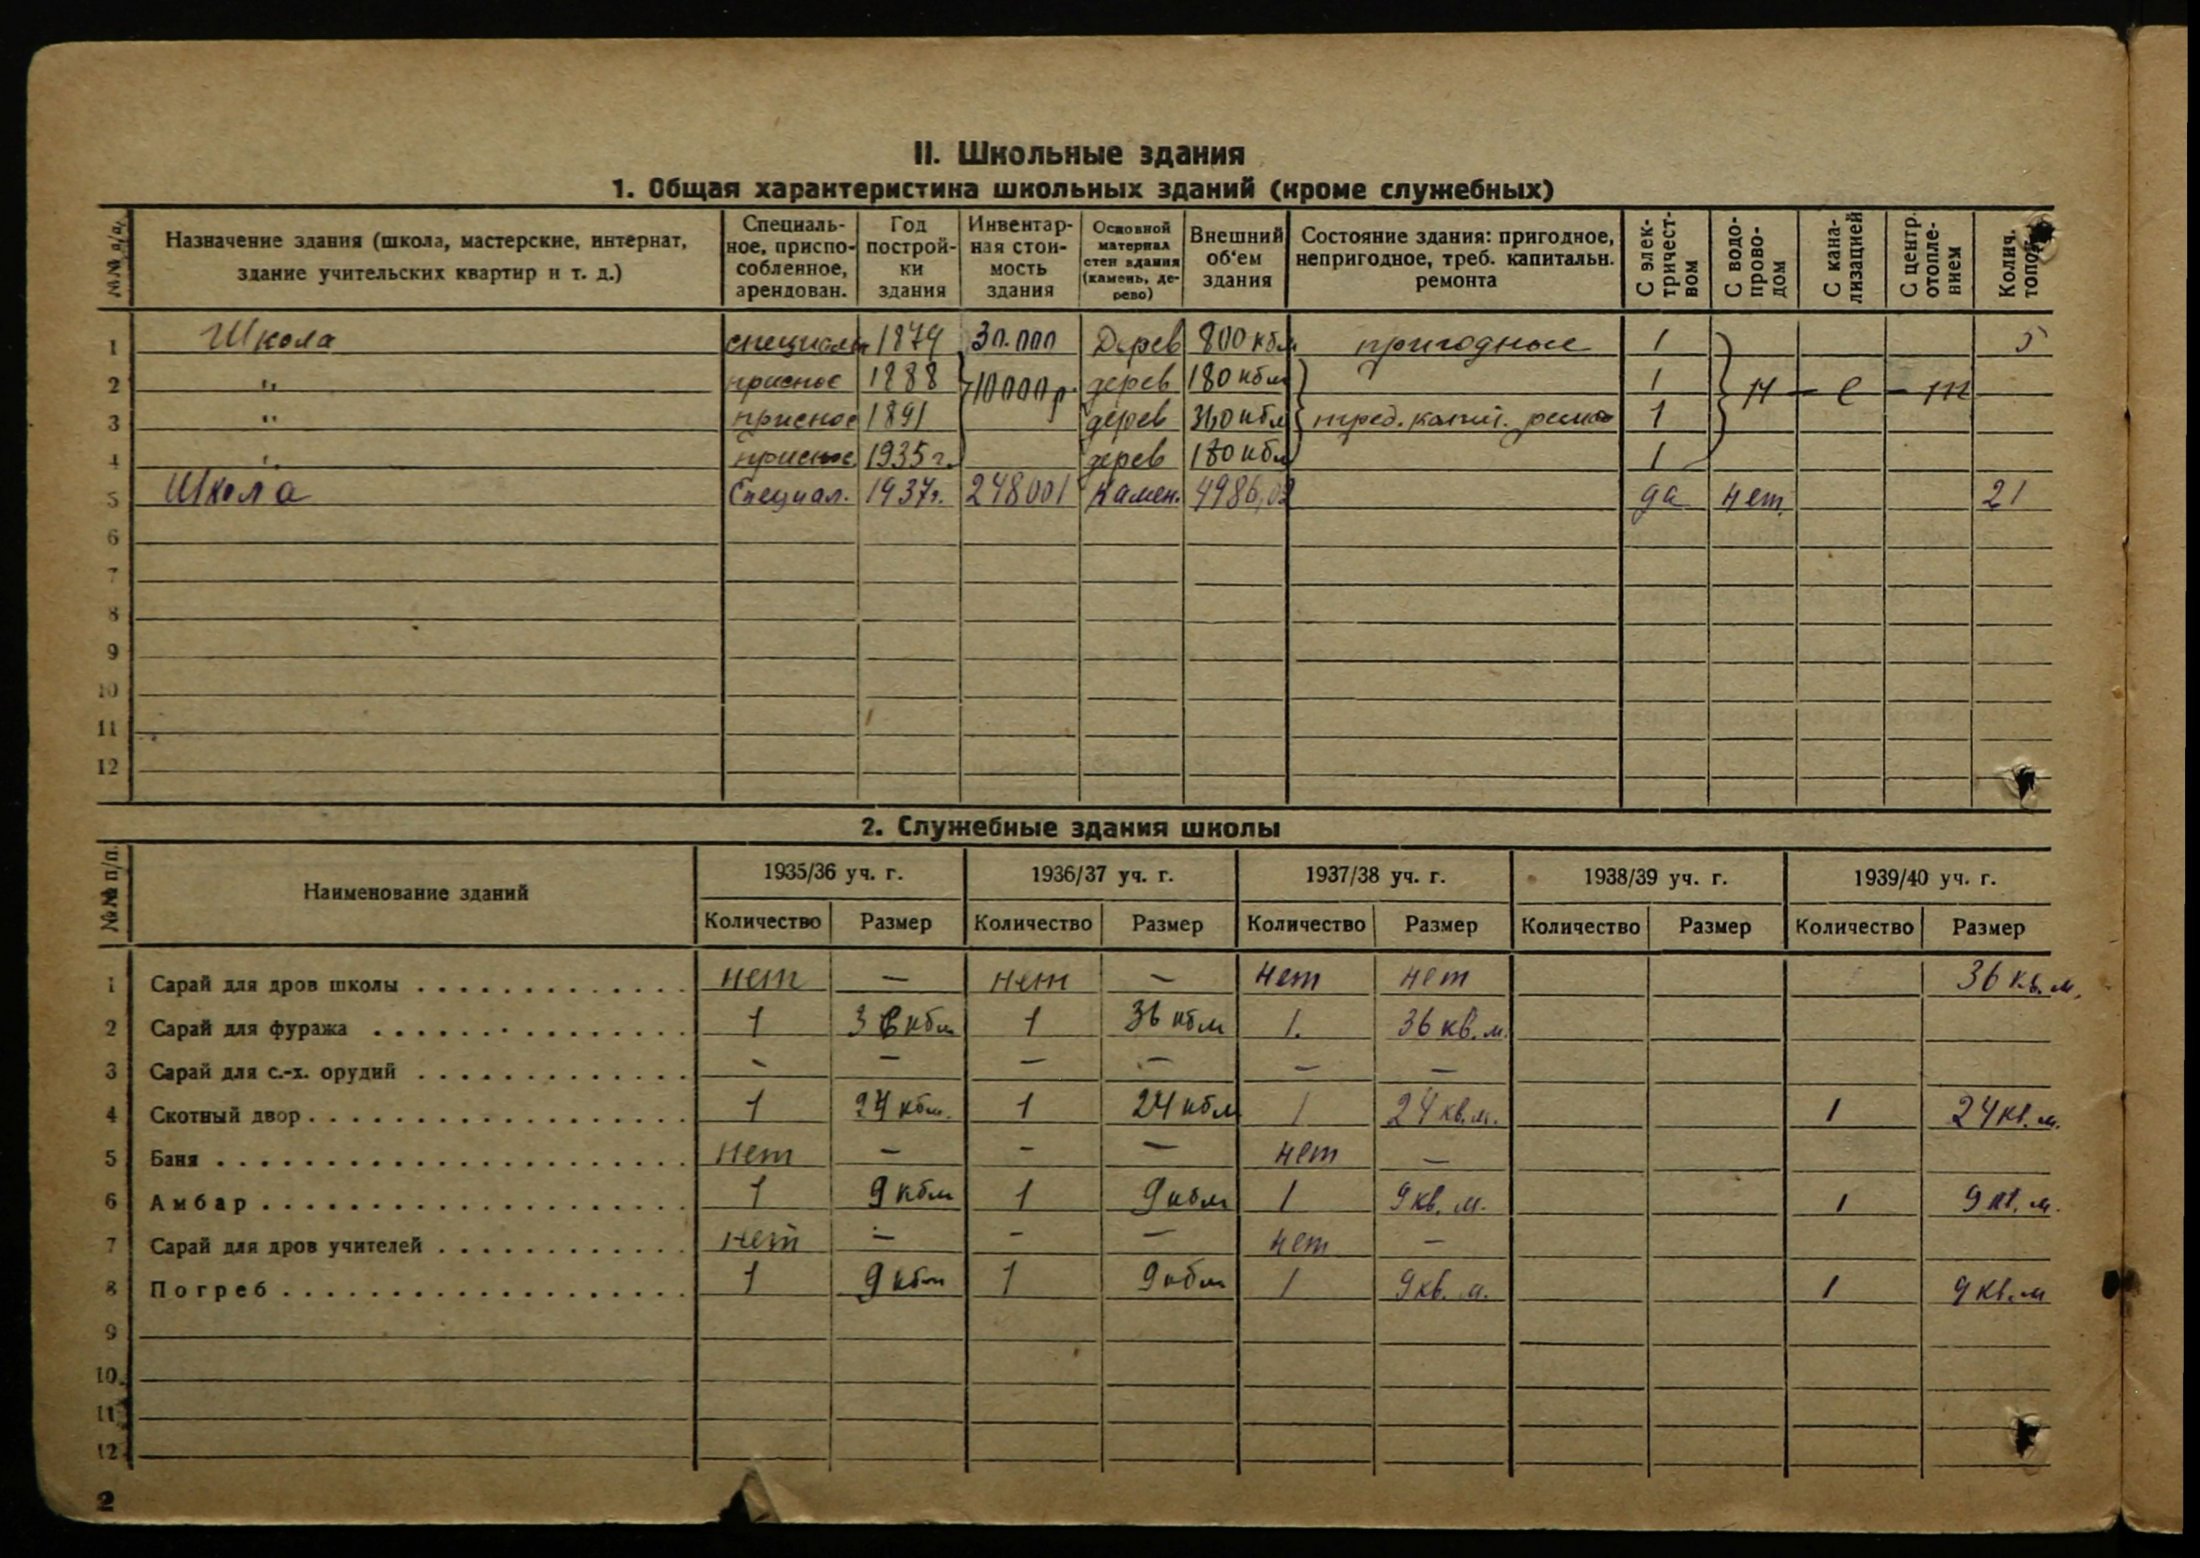 II. Школьные здания
1. Общая характеристика школьных зданий (кроме служебных)
№№ п/п. Назначение здания (школа, мастерские, интернат, здание учительских квартир и т. д.) Специаль-ное, приспо-собленное, арендован. Год построй-ки здания Инвентар-ная стои-мость здания Основной материал стен здания (камень, де-рево) Внешний об'ем здания Состояние здания: пригодное, непригодное, треб. капитальн. ремонта С элек-тричест-вом С водо-прово-дом С кана-лизацией С центр. отопле-нием Колич.
1 Школа специальн 1879 30.000 Дерев 800 кбм пригодное 1 5
2 " приспос 1888 10000 р. дерев 180 кбм 1 н - е - т
3 " приспос 1891 дерев 360 кбм треб. капит. 1
4 " приспос. 1935 г. дерев 180 кбм 1
5 Школа Специал. 1937 г. 248001 Камен. 4986,02 да нет. 21
6
7
8
9
10
11
12
2. Служебные здания школы
№№ п/п. Наименование зданий 1935/36 уч. г. 1936/37 уч. г. 1937/38 уч. г. 1938/39 уч. г. 1939/40 уч. г.
Количество Размер Количество Размер Количество Размер Количество Размер Количество Размер
1 Сарай для дров школы . . . . . . . . . . . . . нет — нет — нет нет 36 кв. м.
2 Сарай для фуража . . . . . . . . . . . . . . 1 36 кбм 1 36 кбм 1. 36 кв. м.
3 Сарай для с.-х. орудий . . . . . . . . . . . . — — — — — —
4 Скотный двор . . . . . . . . . . . . . . . . . 1 24 кбм. 1 24 кбм 1 24 кв. м. 1 24 кв. м.
5 Баня . . . . . . . . . . . . . . . . . . . . . нет — — — нет —
6 Амбар . . . . . . . . . . . . . . . . . . . 1 9 кбм 1 9 кбм 1 9 кв. м. 1 9 кв. м.
7 Сарай для дров учителей . . . . . . . . . . . нет — — — нет —
8 Погреб . . . . . . . . . . . . . . . . . . 1 9 кбм 1 9 кбм 1 9 кв. м. 1 9 кв. м
9
10
11
12
2